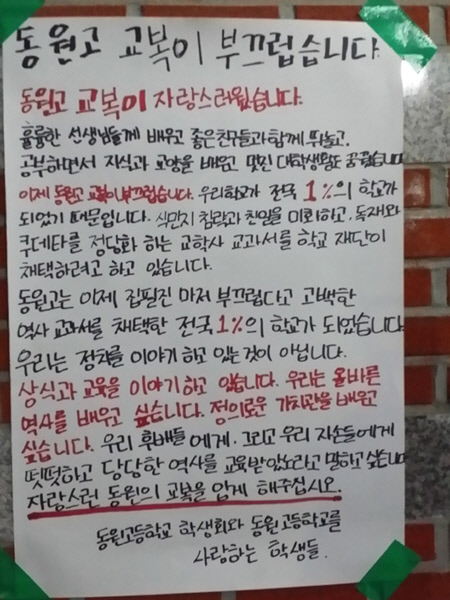 동원고 교복이 부끄럽습니다
동원고 교복이 자랑스러웠습니다.
훌륭한 선생님들께 배우고 좋은친구들과함께 뛰놀고,
공부하면서 지식과 교양을 배우고 멋진 대학생활도 꿈꿨습니다
이제 동원고 교복이 부끄럽습니다. 우리학교가 전국 1%의 학교가
되었기 때문입니다. 식민지 침략과 친일을 미화하고, 독재와
쿠데타를 정당화 하는 교학사 교과서를 학교 재단이
채택하려고 하고 있습니다.
동원고는 이제 집필진 마저 부끄럽다고 고백한
역사 교과서를 채택한 전국 1%의 학교가 되었습니다
우리는 정치를 이야기 하고 있는것이 아닙니다.
상식과 교육을 이야기하고 있습니다. 우리는 올바른
역사를 배우고 싶습니다. 정의로운 가치관을 배우고
싶습니다. 우리 후배들 에게. 그리고 우리 자손들에게
떳떳하고 당당한 역사를 교육받았노라고 말하고 싶습니다
자랑스런 동원의 교복을 입게 해주십시오.
동원고등학교 학생회와 동원고등학교를
사랑하는 학생들.